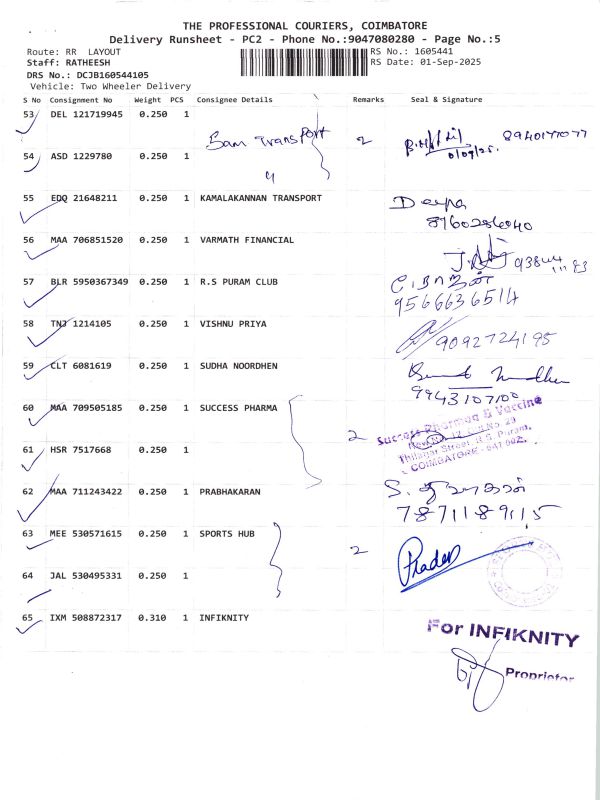 THE PROFESSIONAL COURIERS, COIMBATORE
Delivery Runsheet - PC2 - Phone No.:9047080280 - Page No.:5
Route: RR LAYOUT
RS No.: 1605441
Staff: RATHEESH
RS Date: 01-Sep-2025
DRS No.: DCJB160544105
Vehicle: Two Wheeler Delivery
S No Consignment No Weight PCS Consignee Details Remarks Seal & Signature
53 DEL 121719945 0.250 1
Bam Transport 2 8940177077
01/09/25.
54 ASD 1229780 0.250 1
55 EDQ 21648211 0.250 1 KAMALAKANNAN TRANSPORT Deepa
8760286040
56 MAA 706851520 0.250 1 VARMATH FINANCIAL
57 BLR 5950367349 0.250 1 R.S PURAM CLUB
9566636514
58 TNJ 1214105 0.250 1 VISHNU PRIYA
9092724195
59 CLT 6081619 0.250 1 SUDHA NOORDHEN
9943107100
60 MAA 709505185 0.250 1 SUCCESS PHARMA
2 Success Pharmaa & Vaccine
Thilagar Street, R.S. Puram,
COIMBATORE - 641 002.
61 HSR 7517668 0.250 1
62 MAA 711243422 0.250 1 PRABHAKARAN
7871189115
63 MEE 530571615 0.250 1 SPORTS HUB
2
64 JAL 530495331 0.250 1
65 IXM 508872317 0.310 1 INFIKNITY
For INFIKNITY
Proprietor